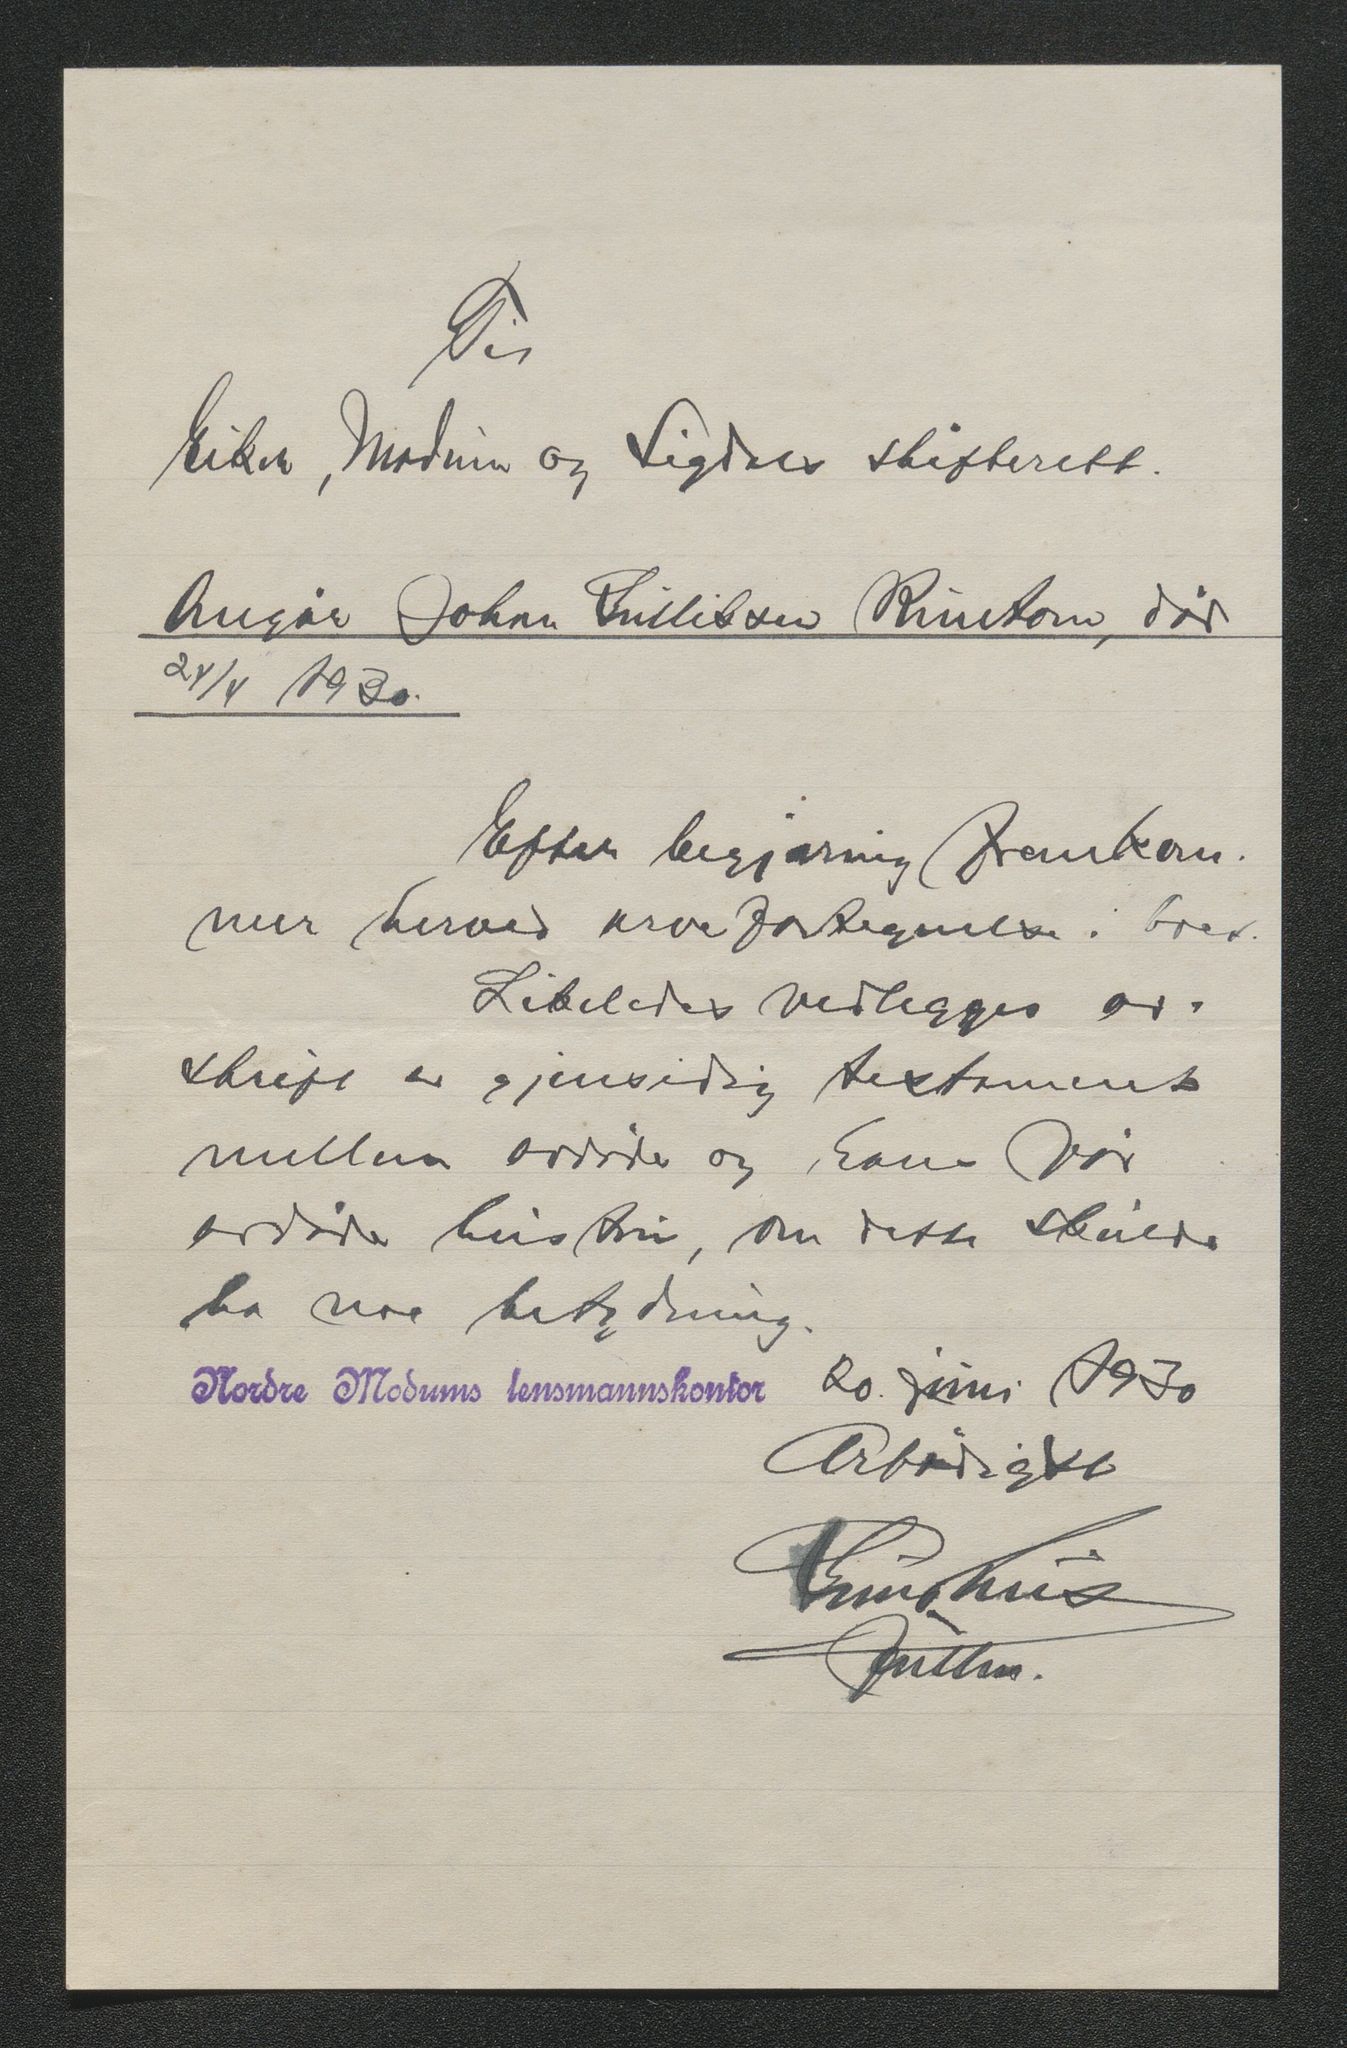 Til
Eiker, Modum og Sigdals skifterett.
Angår Johan Gulliksen Rustom, død
24/4 1930.
Efter begjæring fremkom-
mer herved arvefortegnelse i boet.
Likeledes vedlegges av-
skrift av gjensidig testament
mellem avdøde og hans før
avdøde hustru, om dette skulde
ha noe betydning.
Nordre Modums lensmannskontor 20. juni 1930
Ærbødigst